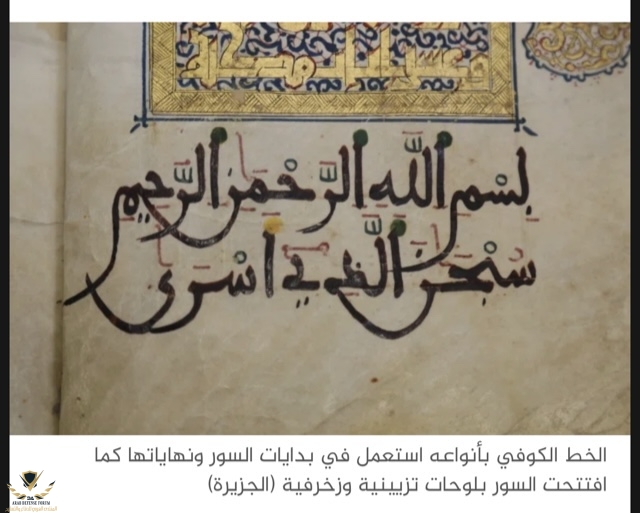 بِسْمِ اللَّهِ الرَّحْمَٰنِ الرَّحِيمِ
سُبْحَٰنَ الَّذِي أَسْرَىٰ
الخط الكوفي بأنواعه استعمل في بدايات السور ونهاياتها كما
افتتحت السور بلوحات تزيينية وزخرفية (الجزيرة)
ARAB DEFENSE FORUM